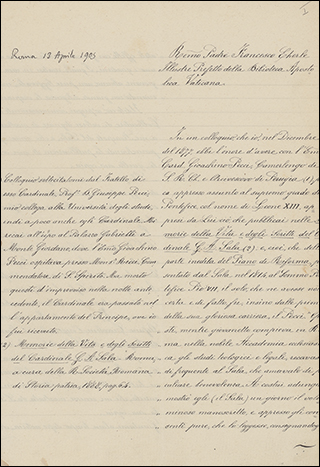 I
Roma 13 Aprile 1905
Rmo Padre Francesco Eherle
Illustre Prefetto della Biblioteca Aposto
lica Vaticana.
In un colloquio, che io, nel Decembre
del 1877, ebbi l'onore d'avere, con l'Em
Card. Gioachino Pecci, Camerlengo di
S. R. Ch. e Arcivescovo di Perugia, (1)
appresso assunto al supremo grado di
Pontefice, col nome di Leone XIII, ap
presi da Lui ciò, che pubblicai nelle
morie della Vita e degli Scritti del
dinale G. A. Sala, (2) e, cioè, che del
parte inedita del Piano di Riforma
sentato dal Sala, nel 1814, al Sommo
tefice Pio VII, il solo, che ne avesse no
certa e di fatto fu, insino dalle prime
della sua gloriosa carriera, il Pecci
ste, mentre giovanetto compiva, in R
ma, nella nobile Accademia
gli studi teologici e legali, usava
di frequente al Sala, che
benevolenza.
mostrò egli (il Sala) un giorno il volu
minoso manoscritto, e appresso gli con
sentì pure, che lo leggesse, consegnandogl
Colloquio sollecitatomi dal Fratello di
esso Cardinale, Prof. D. Giuseppe Pecci,
mio collega, alla Università degli studi,
indi a poco anche egli Cardinale. Mi
recai all'uopo al Palazzo Gabrielli a
Monte Giordano, dove l'Emo Gioachino
Pecci ospitava presso Monsr Ricci, Com
mendatore di S. Spirito. Ma, morto
questo d'improvviso nella notte ante
cedente, il Cardinale era passato nel
l'appartamento del Principe, ove io
fui ricevuto.
2) Memorie della Vita e degli Scritti
del Cardinale G. A. Sala. Roma,
a cura della R. Società Romana
di Storia patria, 1888, pag. 64.